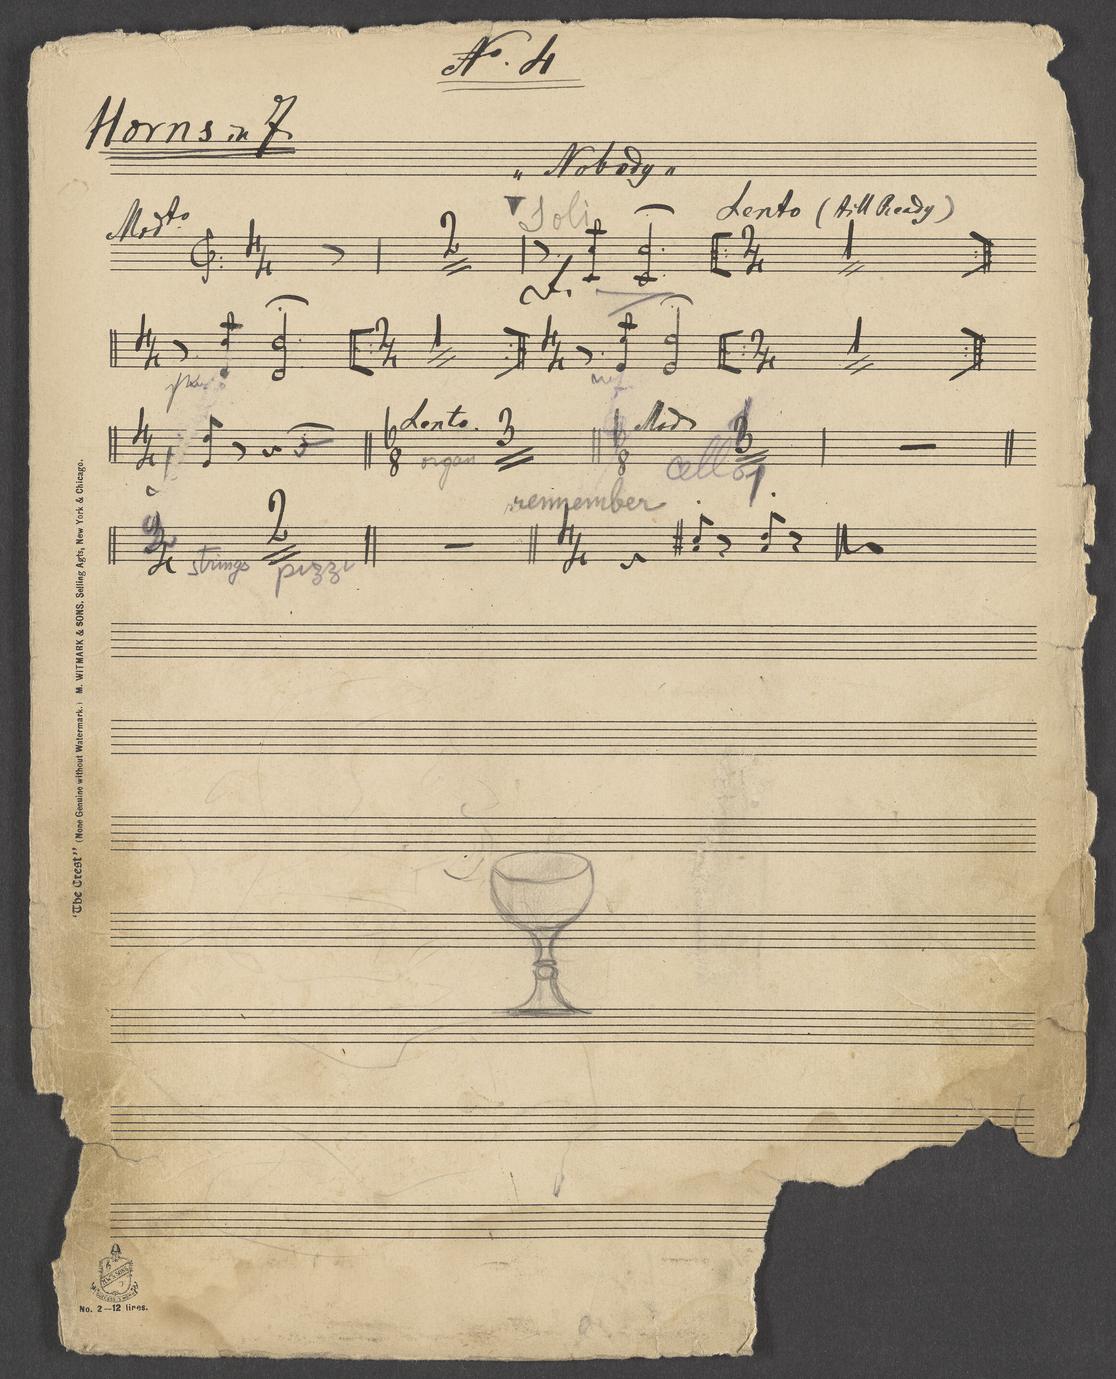 No. 4
Horns in F.
„ Nobody "
Modto.
Soli
Lento (till Ready)
4/4
2
f.
2/4
1
4/4
2/4
1
4/4
2/4
1
mf
4/4
6/8
Lento.
3
6/8
Mod
organ
cello
remember
2/4
2
4/4
strings
pizz
"The Crest" (None Genuine without Watermark.) M. WITMARK & SONS, Selling Agts, New York & Chicago.
No. 2—12 lines.